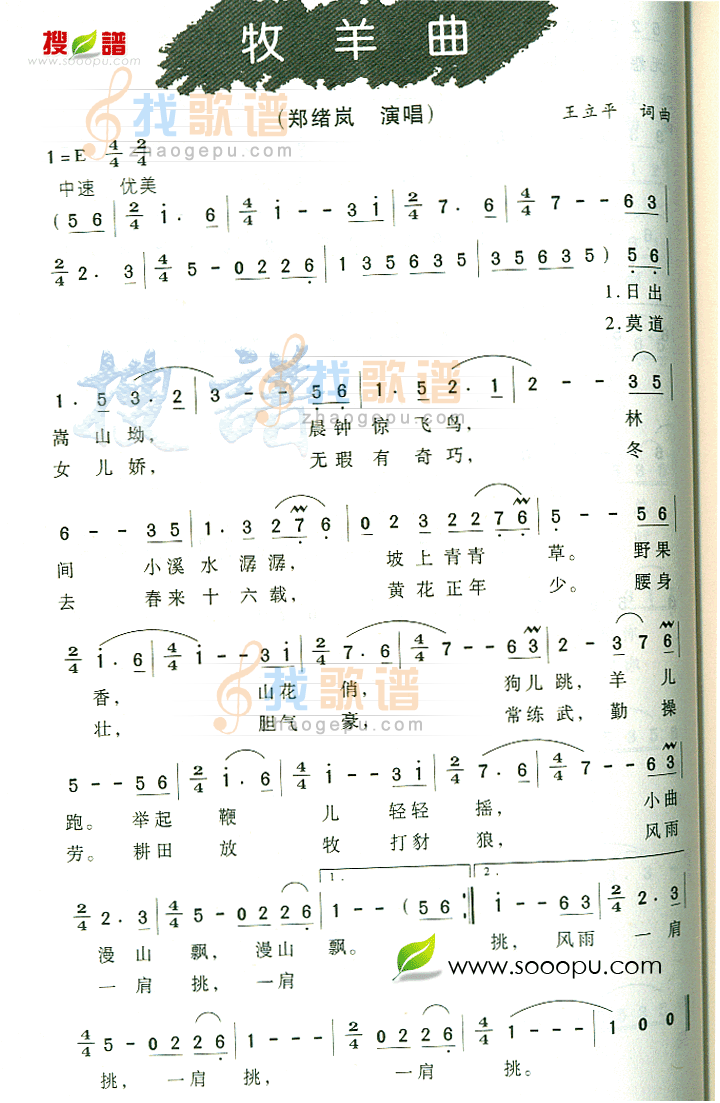 搜谱
www.sooopu.com
牧羊曲
找歌谱
zhaogepu.com
(郑绪岚 演唱)
王立平 词曲
1=E 4/4 2/4
中速 优美
(5 6 | 2/4 i· 6 | 4/4 i - - 3 i | 2/4 7· 6 | 4/4 7 - - 6 3 |
2/4 2· 3 | 4/4 5 - 0 2 2 6 | 1 3 5 6 3 5 | 3 5 6 3 5 ) 5 6 |
1.日出
2.莫道
搜谱
找歌谱
zhaogepu.com
1· 5 3· 2 | 3 - - 5 6 | 1· 5 2· 1 | 2 - - 3 5 |
嵩山坳, 晨钟惊飞鸟, 林
女儿娇, 无瑕有奇巧, 冬
6 - - 3 5 | 1· 3 2 7 6 | 0 2 3 2 2 7 6 | 5 - - 5 6 |
间 小溪水潺潺, 坡上青青 草。 野果
去 春来十六载, 黄花正年 少。 腰身
2/4 i· 6 | 4/4 i - - 3 i | 2/4 7· 6 | 4/4 7 - - 6 3 | 2 - 3 7 6 |
找歌谱
zhaogepu.com
香, 山花 俏, 狗儿跳, 羊儿
壮, 胆气 豪, 常练武, 勤操
5 - - 5 6 | 2/4 i· 6 | 4/4 i - - 3 i | 2/4 7· 6 | 4/4 7 - - 6 3 |
跑。 举起 鞭 儿 轻轻 摇, 小曲
劳。 耕田 放 牧 打豺 狼, 风雨
1. 2.
2/4 2· 3 | 4/4 5 - 0 2 2 6 | 1 - - (5 6 :‖ i - - 6 3 | 2/4 2· 3 |
漫山 飘, 漫山 飘。 挑, 风雨 一肩
一肩 挑, 一肩
www.sooopu.com
4/4 5 - 0 2 2 6 | 1 - - - | 2/4 0 2 2 6 | 4/4 1 - - - | 1 0 0 ‖
挑, 一肩 挑, 一肩 挑。